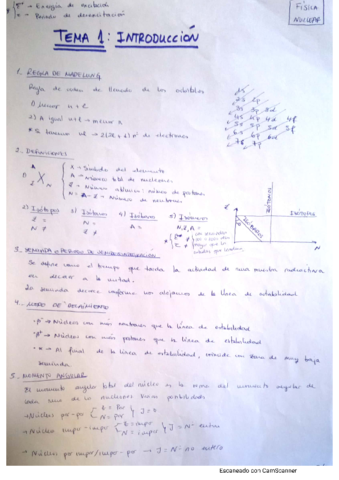 E* → Energía de excitación
→ Periodo de
FÍSICA
NUCLEAR
TEMA 1: INTRODUCCIÓN
1. REGLA DE MADELUNG
Regla de orden de llenado de los orbitales
1) menor n + l
2) A igual n+l → menor n
* Si tenemos nl → 2(2l+1) nº de electrones
1s
2s 2p
3s 3p 3d
4s 4p 4d 4f
5s 5p 5d 5f
6s 6p
7s 7p
2. Definiciones
1) A X N
Z
X → Símbolo del elemento
A → Número total de nucleones
Z → Número atómico: número de protones
N = A - Z → Número de neutrones
2) Isótopo
Z =
N ≠
3) Isótono
N =
Z ≠
4) Isóbaro
A =
5) Isómero
N, Z, A =
E* ≠
Z
ISÓTONOS
ISÓBAROS
ISÓTOPOS
N
3. SEMIVIDA O PERIODO DE SEMIDESINTEGRACIÓN
Se define como el tiempo que tarda la actividad de una muestra radiactiva
en decaer a la mitad.
La semivida decrece conforme nos alejamos de la línea de estabilidad
4. MODO DE DECAIMIENTO
· β⁻ → Núcleos con más neutrones que la línea de estabilidad
· β⁺ → Núcleos con más protones que la línea de estabilidad
· α → Al final de la línea de estabilidad, coincide con zona de muy baja
semivida
5. MOMENTO ANGULAR
El momento angular total del núcleo es la suma del momento angular de
cada uno de sus nucleones
→ Núcleo par-par { Z = Par N = Par } J = 0
→ Núcleo impar-impar { Z = impar N = impar } J = Nº entero
→ Núcleo par-impar/impar-par → J = Nº no entero
Escaneado con CamScanner